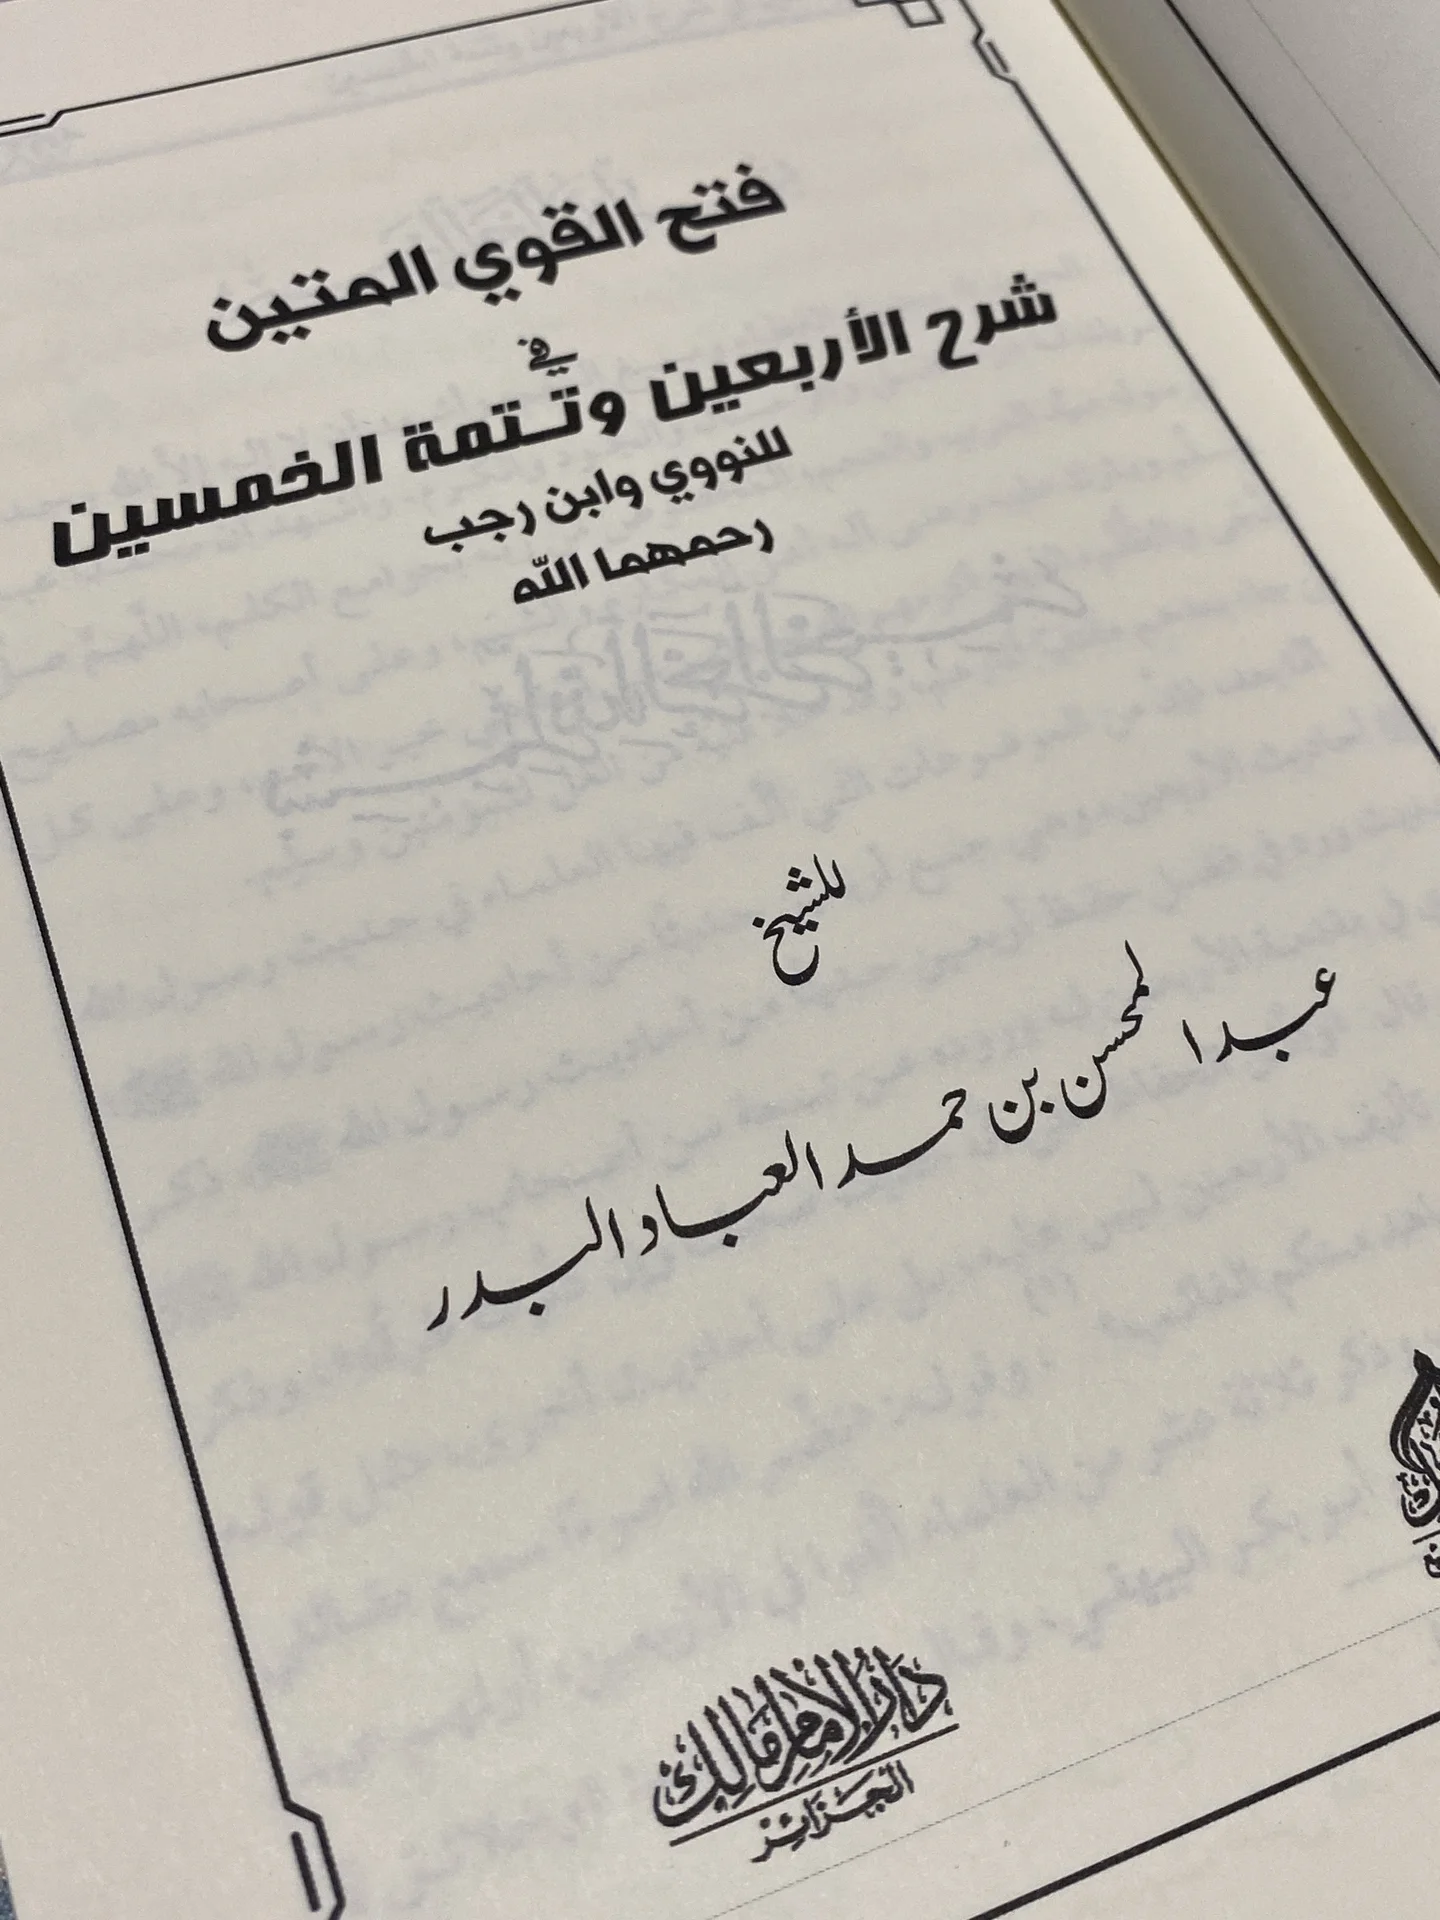 فتح القوي المتين
في
شرح الأربعين وتتمة الخمسين
للنووي وابن رجب
رحمهما الله
للشيخ
عبد المحسن بن حمد العباد البدر
دار الإمام مالك
الجزائر